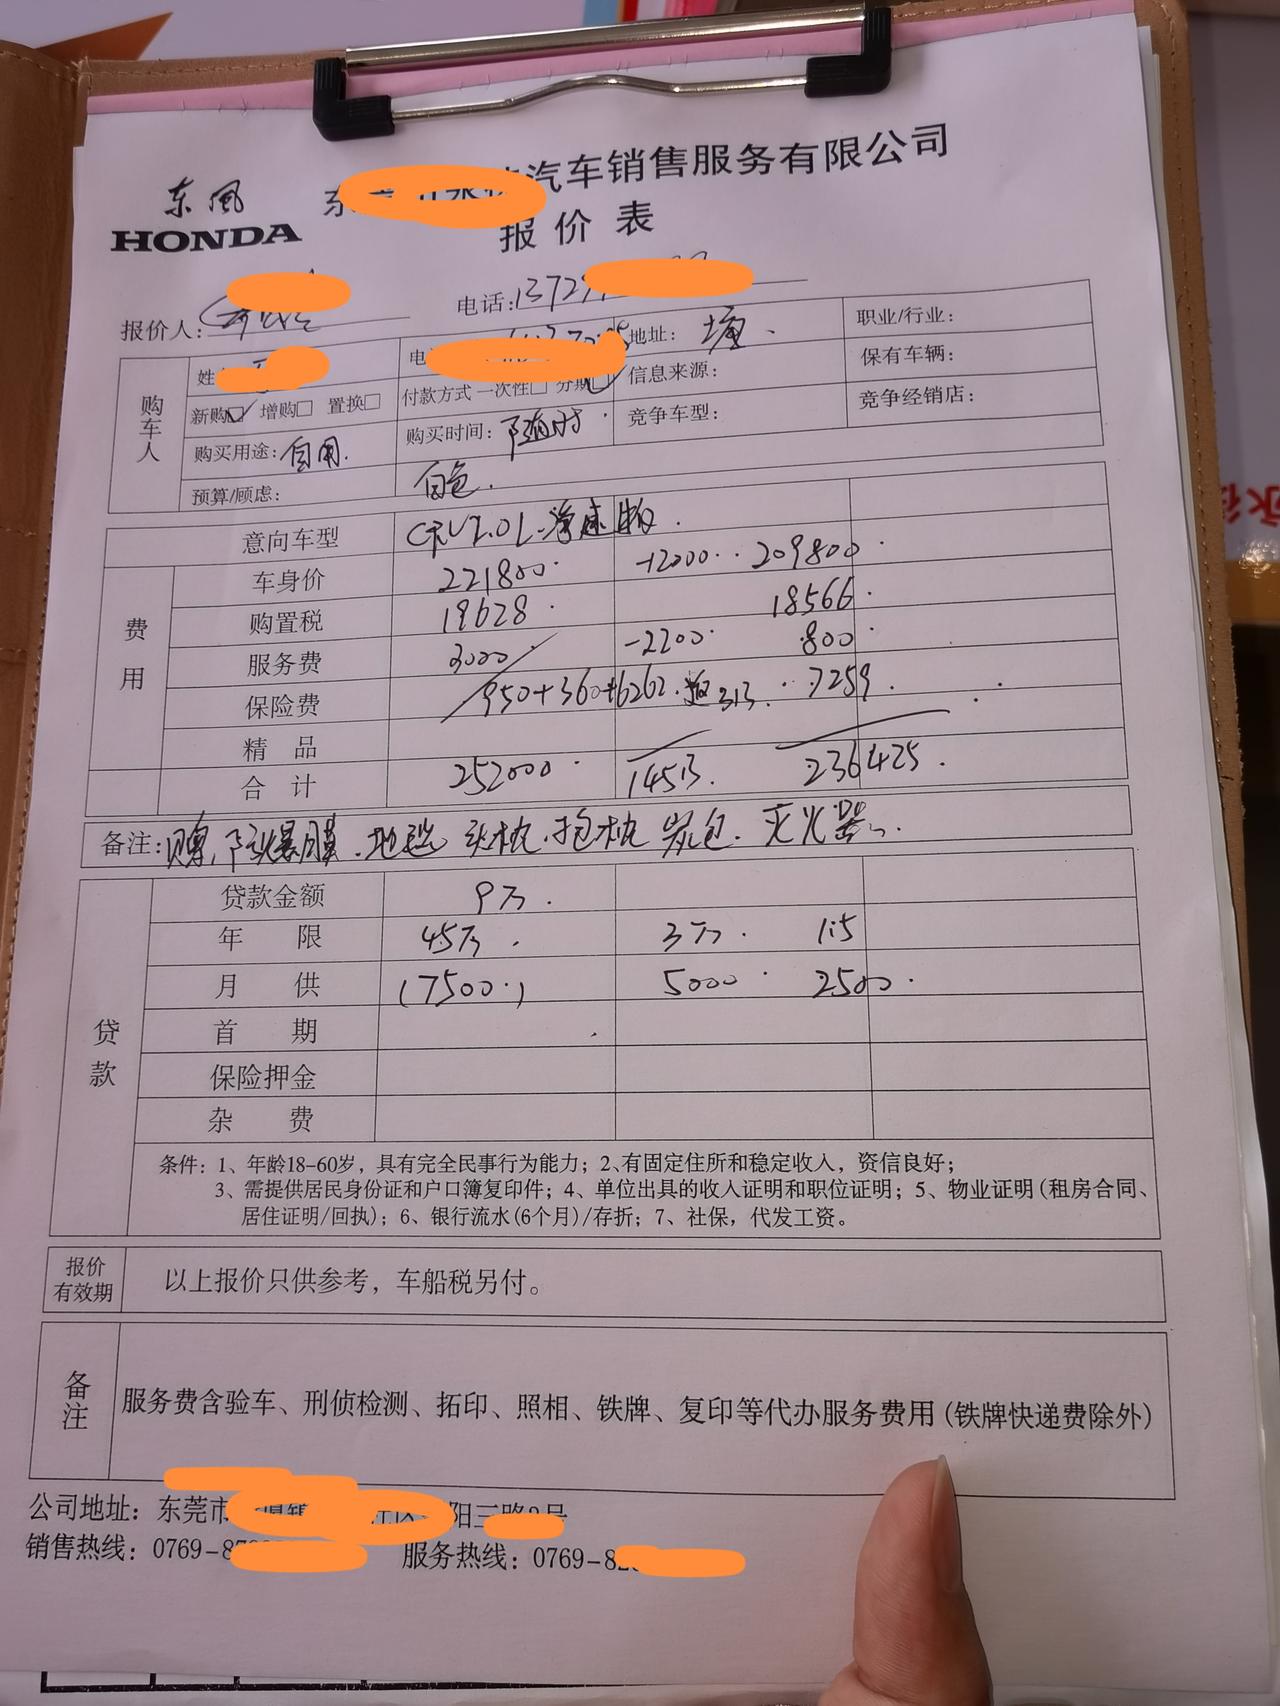 东风
HONDA 汽车销售服务有限公司
报价表
报价人: 电话:1372
购车人
电 地址: 职业/行业:
新购☑ 增购□ 置换□ 付款方式 一次性□ 分期☑ 信息来源: 保有车辆:
购买用途: 自用. 购买时间: 随时. 竞争车型: 竞争经销店:
预算/顾虑: 白色.
意向车型 CRV2.0L净速版.
费用
车身价 221800. -12000.. 209800.
购置税 19628. 18566.
服务费 3000. -2200. 800.
保险费 950+360+6262.返313. 7259.
精品
合计 252000. 14513. 236425.
备注: 赠,防爆膜.地毯 头枕.抱枕 炭包.灭火器
贷款
贷款金额 9万.
年限 4.5万. 3万. 1.5
月供 (7500.) 5000. 2500.
首期
保险押金
杂费
条件: 1、年龄18-60岁,具有完全民事行为能力;2、有固定住所和稳定收入,资信良好;
3、需提供居民身份证和户口簿复印件;4、单位出具的收入证明和职位证明;5、物业证明(租房合同、
居住证明/回执);6、银行流水(6个月)/存折;7、社保,代发工资。
报价有效期 以上报价只供参考,车船税另付。
备注 服务费含验车、刑侦检测、拓印、照相、铁牌、复印等代办服务费用(铁牌快递费除外)
公司地址: 东莞市 阳三路
销售热线: 0769-8 服务热线: 0769-82